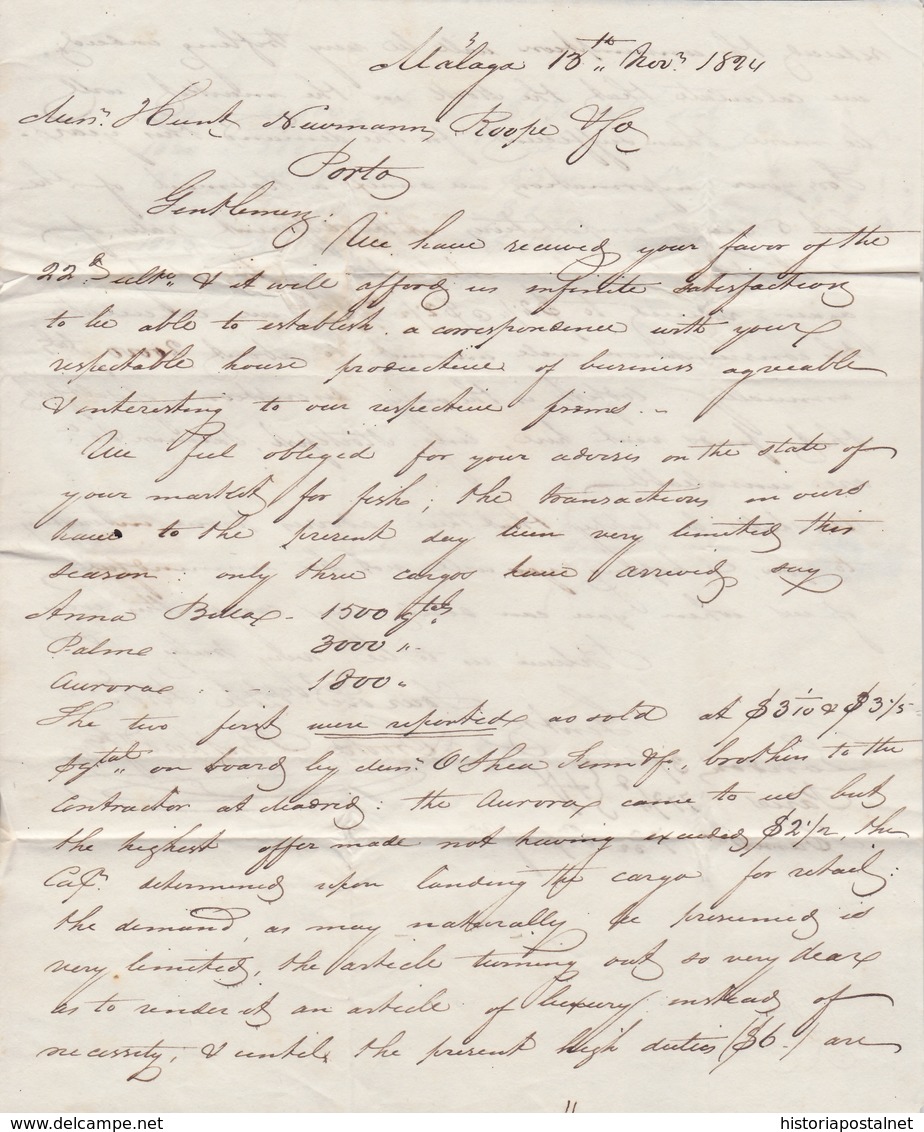 Málaga 13th Novr 1824
Messrs Hunt Newmann Roope & Co
Porto
Gentlemen,
We have received your favor of the
22d ulto, & it will afford us infinite satisfaction
to be able to establish a correspondence with your
respectable house productive of business agreable
& interesting to our respective firms.
We feel obliged for your advises on the state of
your market for fish; the transactions in ours
have to the present day been very limited this
season: only three cargos have arrived, say
Anna Bella - 1500 qtals
Palme - 3000 "
Aurora - - 1800 "
The two first were reported as sold at $3 1/10 & $3 1/5
p qtal on board by Messrs O'Shea & Co, brothers to the
Contractor at Madrid: the Aurora came to us but
the highest offer made not having exceeded $2 1/2, the
Capn determined upon landing the cargo for retail:
the demand, as may naturally be presumed is
very limited, the article turning out so very dear
as to render it an article of luxury instead of
necessity; & until the present high duties ($6 -) are
historiapostalnet